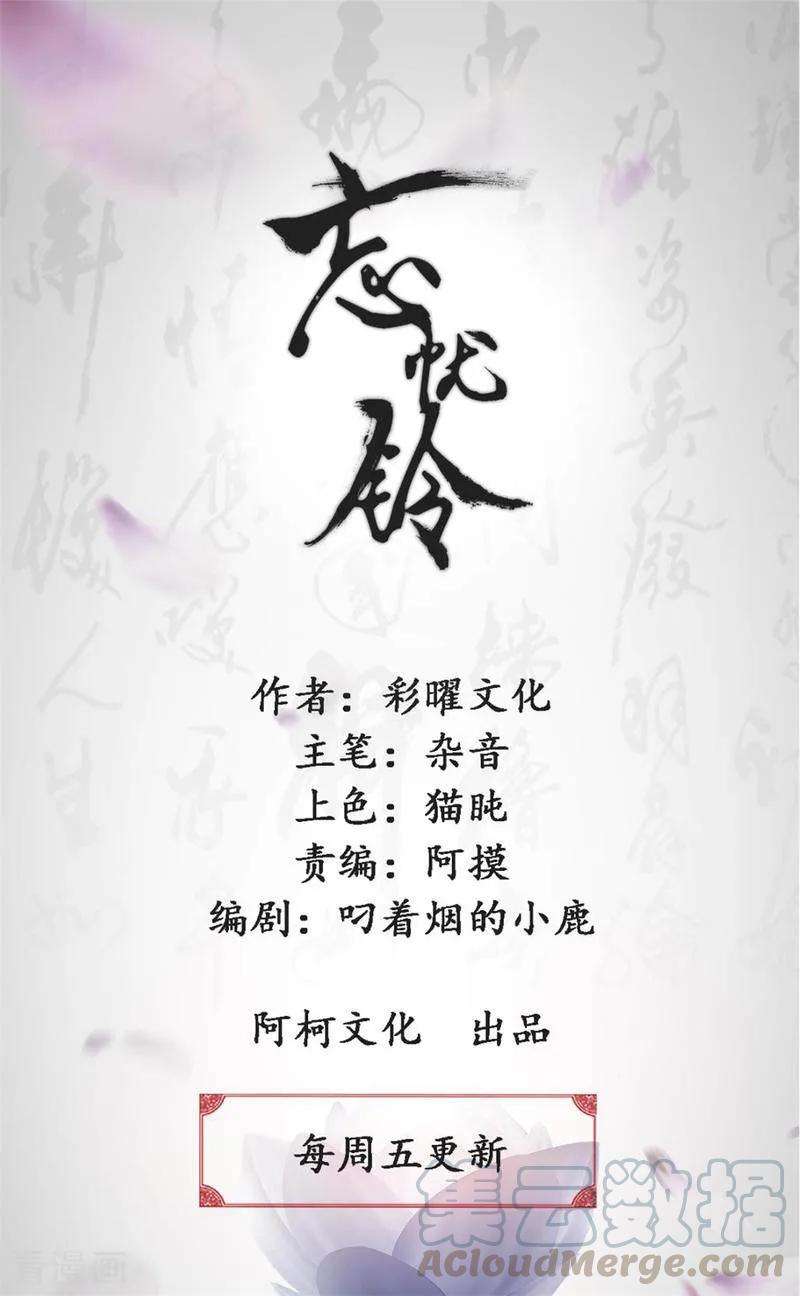 忘忧铃
作者：彩曜文化
主笔：杂音
上色：猫盹
责编：阿摸
编剧：叼着烟的小鹿
阿柯文化 出品
每周五更新
集云数据
ACloudMerge.com
看漫画